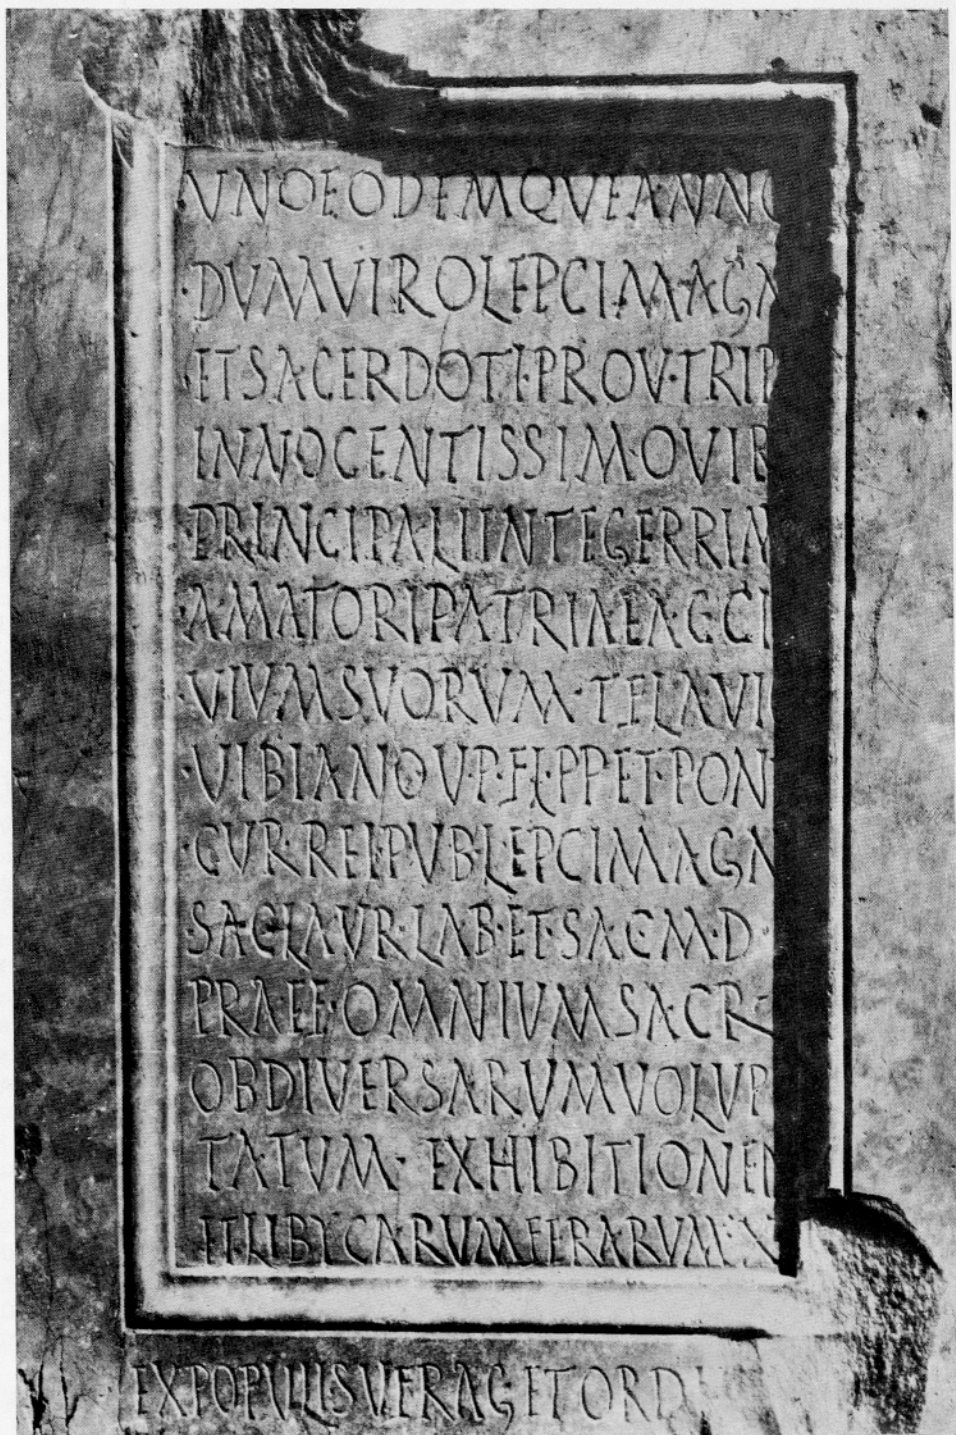 VNO EODEMQVE ANNO
DVMVIRO LEPCIMAGN
ET SACERDOTI·PROV·TRIP
INNOCENTISSIMO VIR
PRINCIPALI INTEGERRIM
AMATORI PATRIAE AC CI
VIVM SVORVM·T·FLAVIO
VIBIANO V·P·FL·PP ET·PONT
CVR·REI·PVB·LEPCIMAGN
SAC·LAVR·LAB·ET·SAC·M·D·
PRAEF·OMNIVM SACR
OB DIVERSARVM VOLVP
TATVM·EXHIBITIONEM
ET LIBYCARVM FERARVM·X
EX POPVLI SVFRAG ET ORD